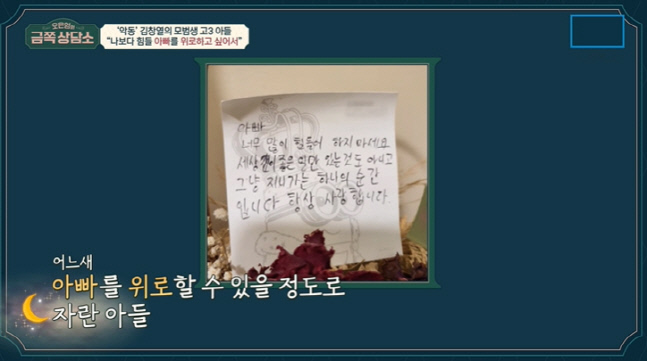 오은영의
금쪽 상담소
‘악동’ 김창열의 모범생 고3 아들
“나보다 힘들 아빠를 위로하고 싶어서”
아빠
너무 많이 힘들어 하지마세요
세상 좋은 일만 있는것도 아니고
그냥 지나가는 하나의 순간
입니다 항상 사랑합니다.
어느새
아빠를 위로할 수 있을 정도로
자란 아들